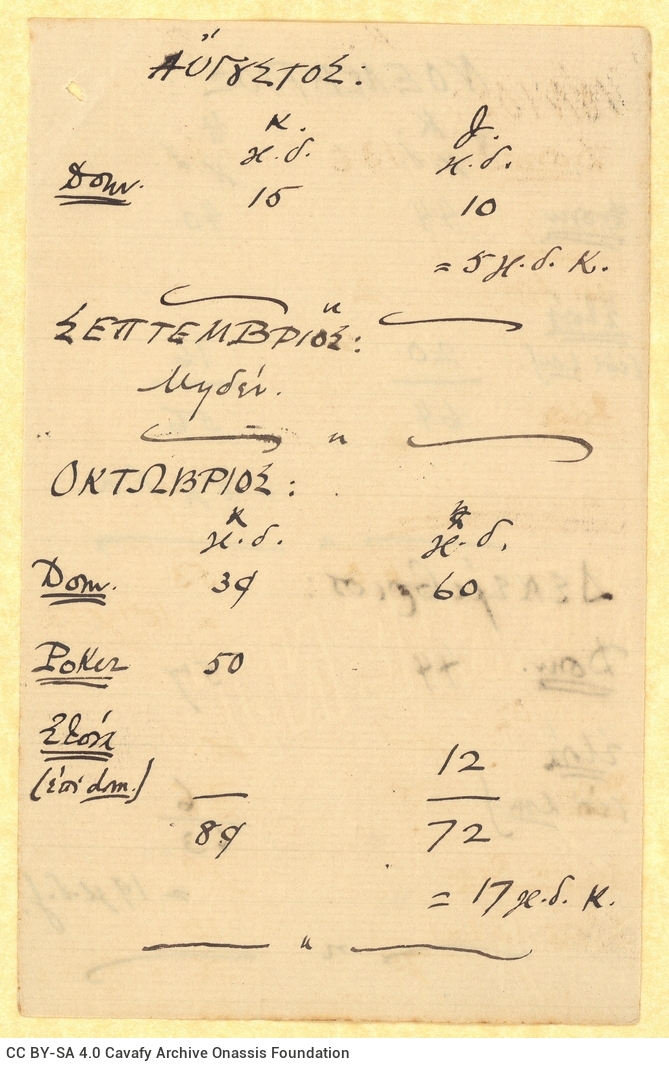 ΑὔΓΟΥΣΤΟΣ:
Κ. ζ.
γ.δ. γ.δ.
Dom. 15 10
= 5 γ.δ. Κ.
"
ΣΕΠΤΕΜΒΡΙΟΣ:
Μηδέν.
"
ΟΚΤΩΒΡΙΟΣ:
Κ
γ.δ. γ.δ.
Dom. 39 60
Poker 50
Στοίχ
(ἐπὶ dom.) 12
89 72
= 17 γ.δ. Κ.
"
CC BY-SA 4.0 Cavafy Archive Onassis Foundation